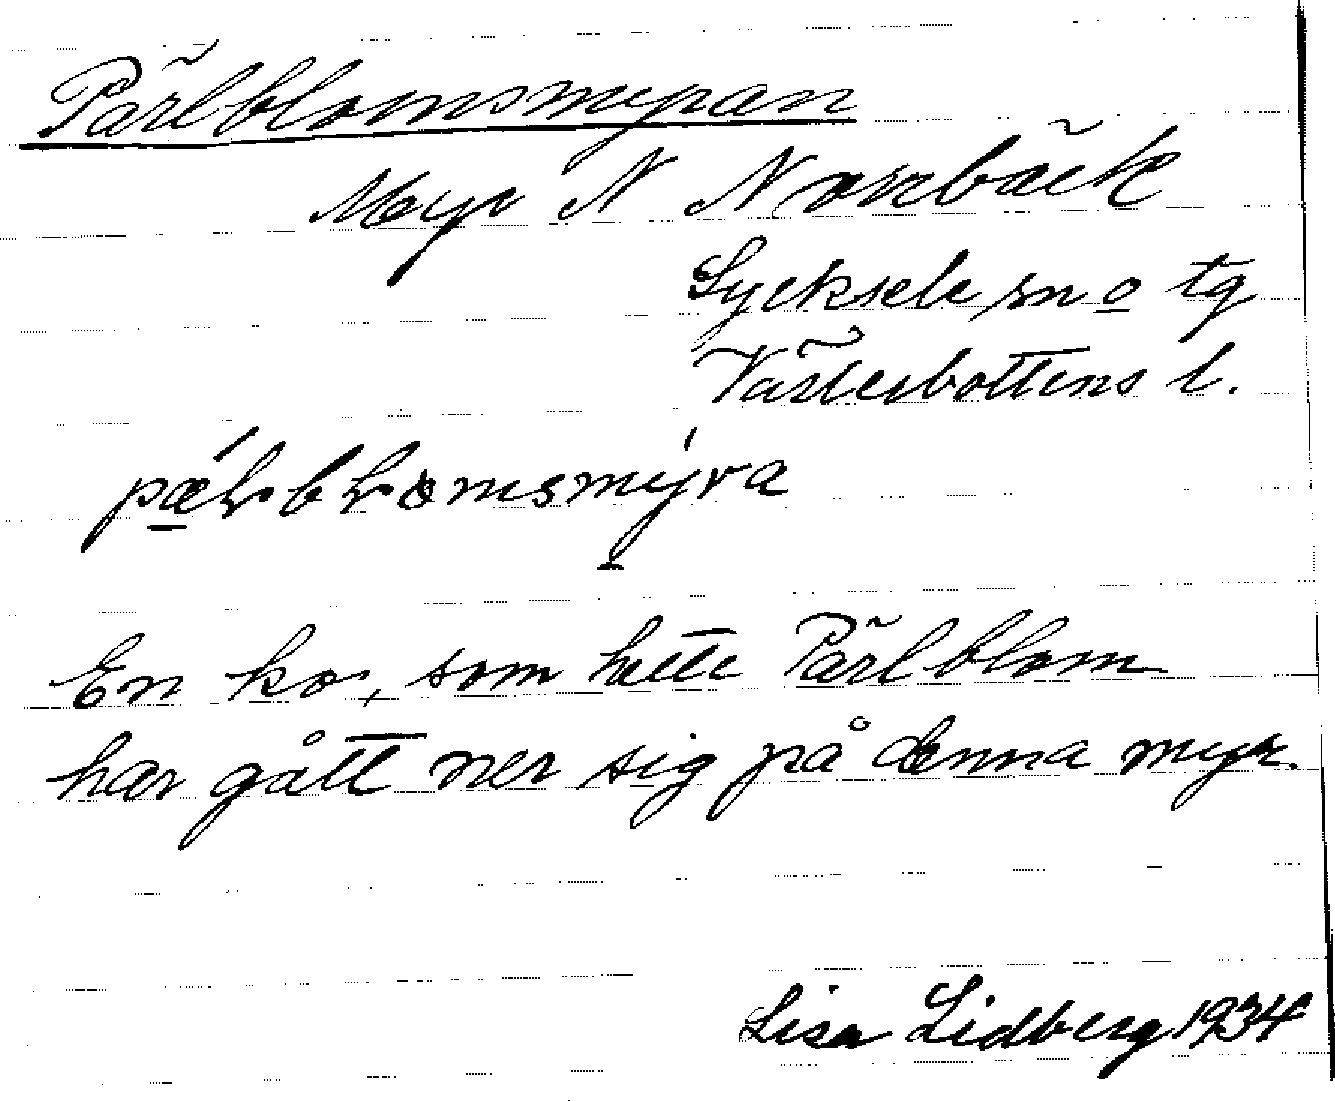 Pärlblomsmyran
Myr N Norrbäck
Lycksele sn o tg
Västerbottens l.
En ko, som hette Pärlblom
har gått ner sig på denna myr.
Lisa Lidberg 1934